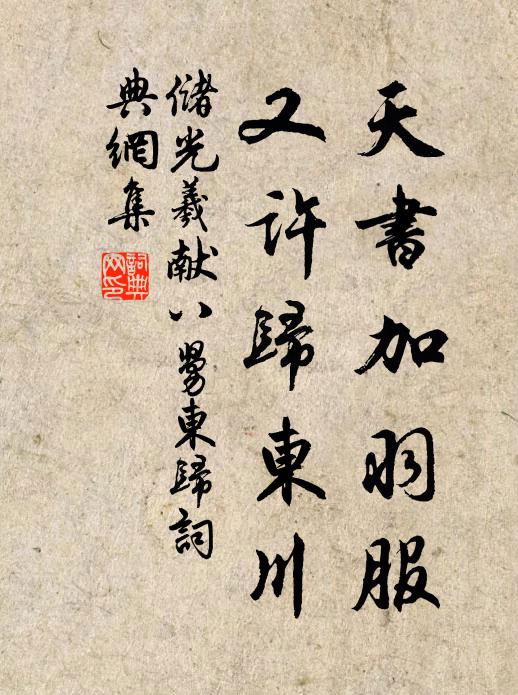 天書加羽服
又許歸東川
儲光羲獻八舅東歸詞
典網集
詞典
网印